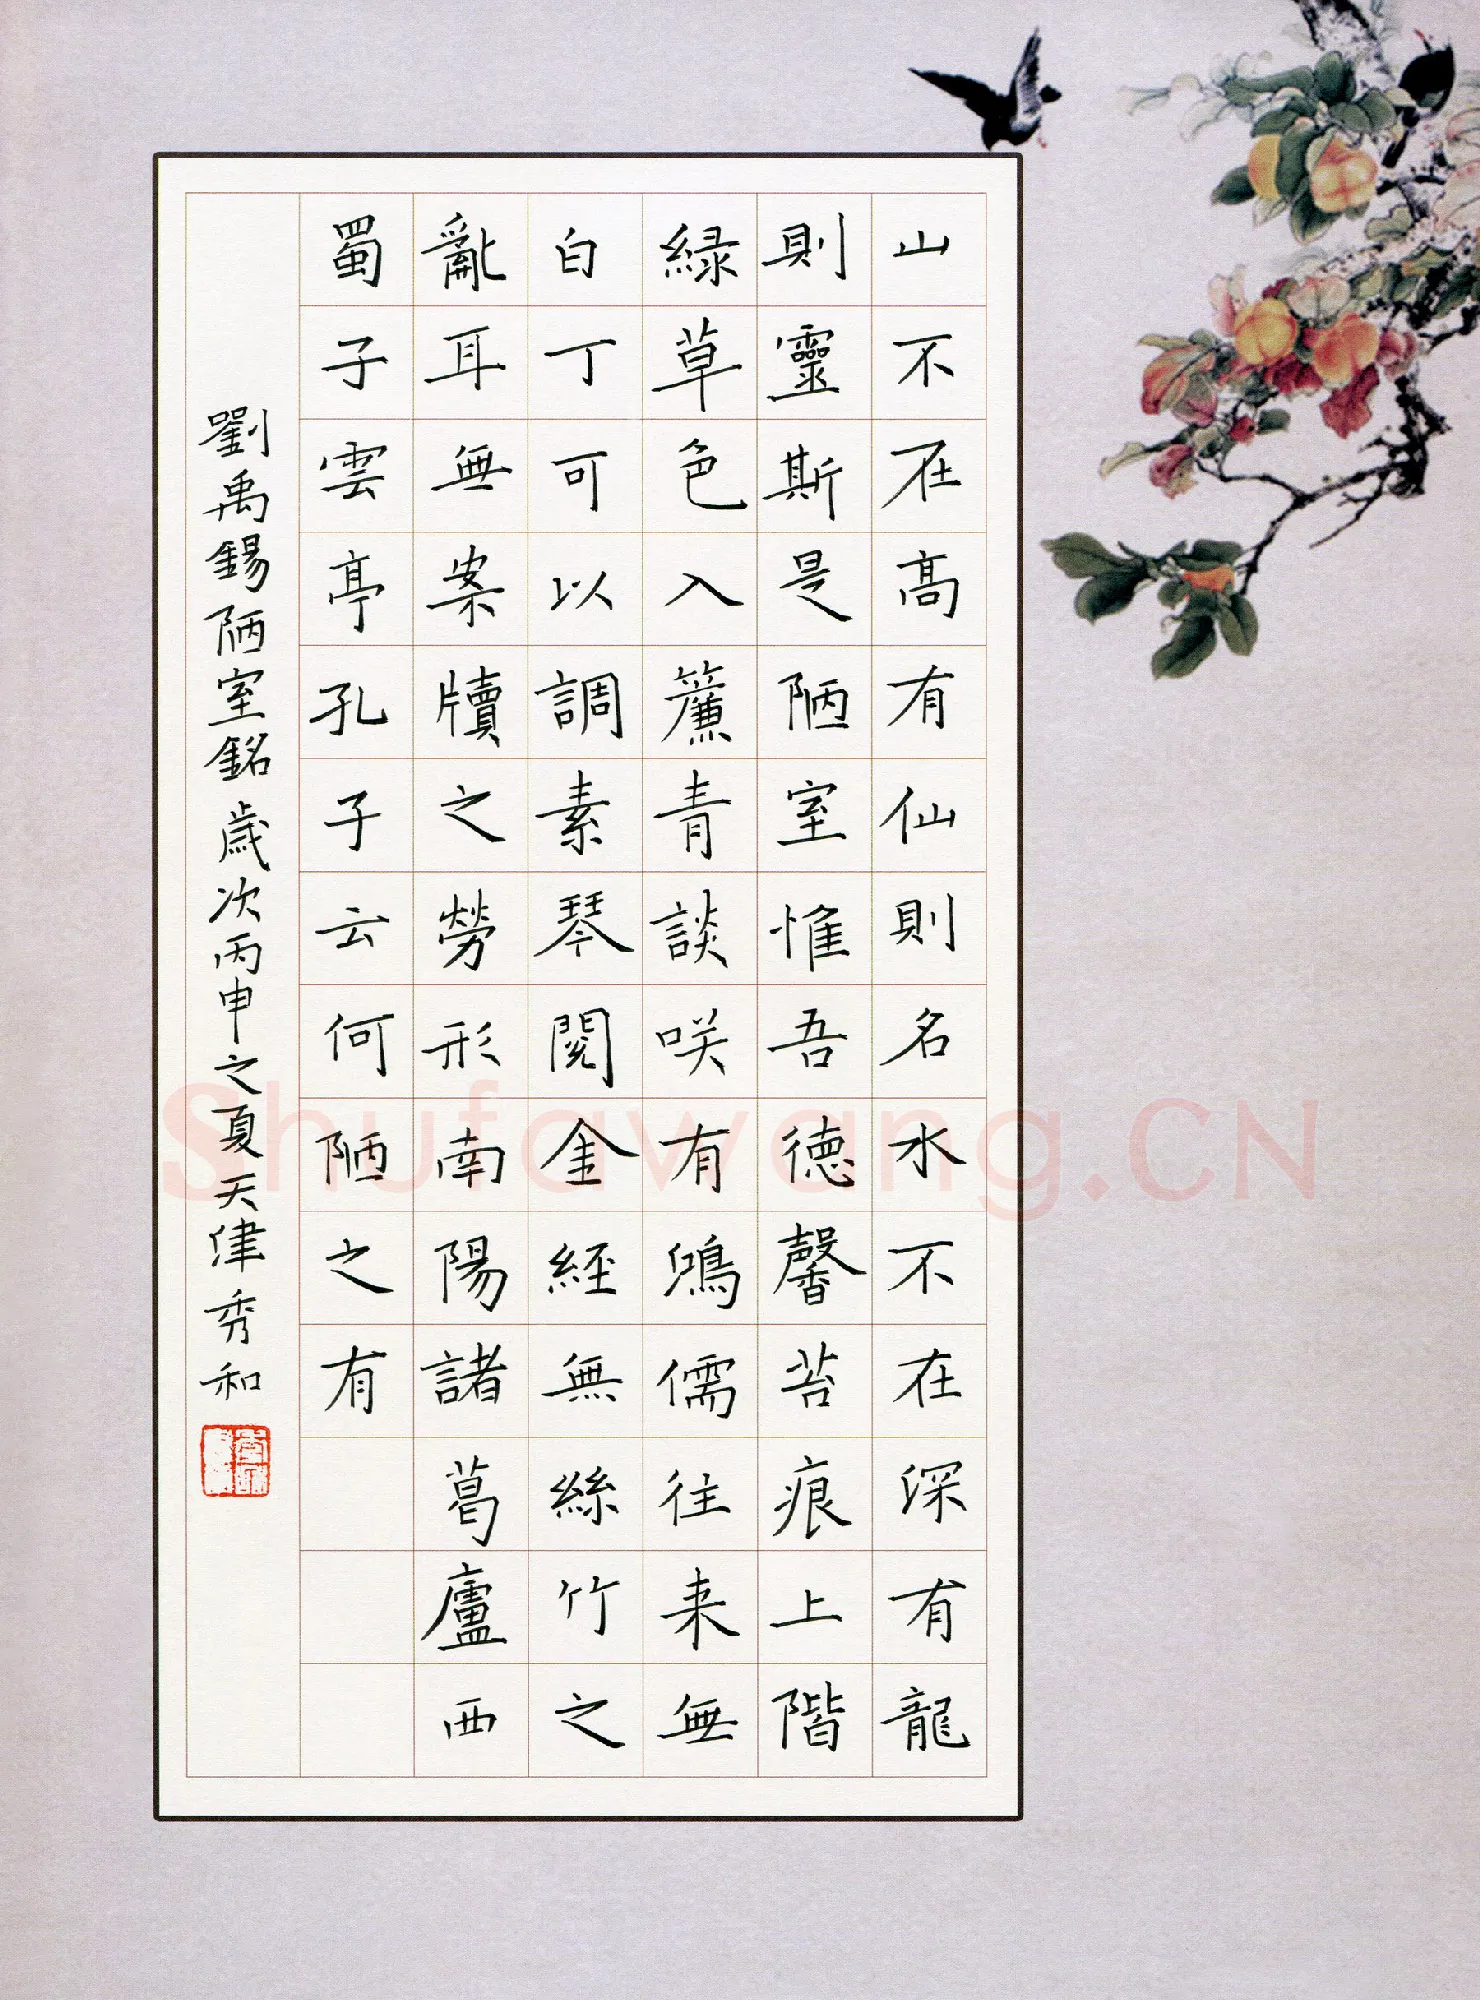 山不在高有仙則名水不在深有龍
則靈斯是陋室惟吾德馨苔痕上階
緑草色入簾青談咲有鴻儒往来無
白丁可以調素琴閲金経無絲竹之
亂耳無案牘之勞形南陽諸葛廬西
蜀子雲亭孔子云何陋之有
劉禹錫陋室銘歲次丙申之夏天津秀和
Shufawang.CN